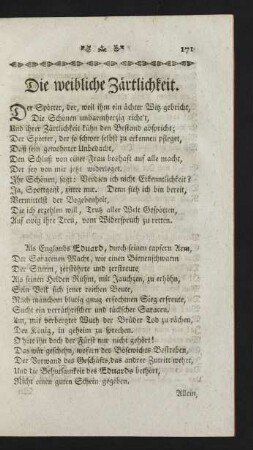 171
Die weibliche Zärtlichkeit.
Der Spötter, der, weil ihm ein ächter Witz gebricht,
Die Schönen unbarmherzig richt't,
Und ihrer Zärtlichkeit kühn den Bestand abspricht;
Der Spötter, der so schwer selbst zu erkennen pfleget,
Daß sein gewohnter Unbedacht,
Den Schluß von einer Frau boshaft auf alle macht,
Der sey von mir jetzt widerleget.
Ihr Schönen, sagt: Verdien ich nicht Erkenntlichkeit?
Ja, Spottgeist, zittre nur. Denn sieh ich bin bereit,
Vermittelst der Begebenheit,
Die ich erzählen will, Trutz aller Welt Gespötten,
Auf ewig ihre Treu, vom Widerspruch zu retten.
Als Englands Eduard, durch seinen tapfern Arm,
Der Saracenen Macht, wie einen Bienenschwarm
Der Sturm, zerstöhrte und zerstreute
Als seinen Helden Ruhm, mit Jauchzen, zu erhöhn,
Sein Volk sich jener reichen Beute,
Nach manchem blutig gnug erfochtnen Sieg erfreute,
Sucht ein verräthrischer und tückscher Saracen,
Aus, mir verborgter Wuth der Brüder Tod zu rächen,
Den König, in geheim zu sprechen.
O hätt ihn doch der Fürst nur nicht gehört!
Das wär geschehn, wofern des Bösewichts Bestreben,
Der Vorwand des Geschäfts, das andrer Zutritt wehrt,
Und die Behutsamkeit des Eduards bethört,
Nicht einen guten Schein gegeben.
Allein,